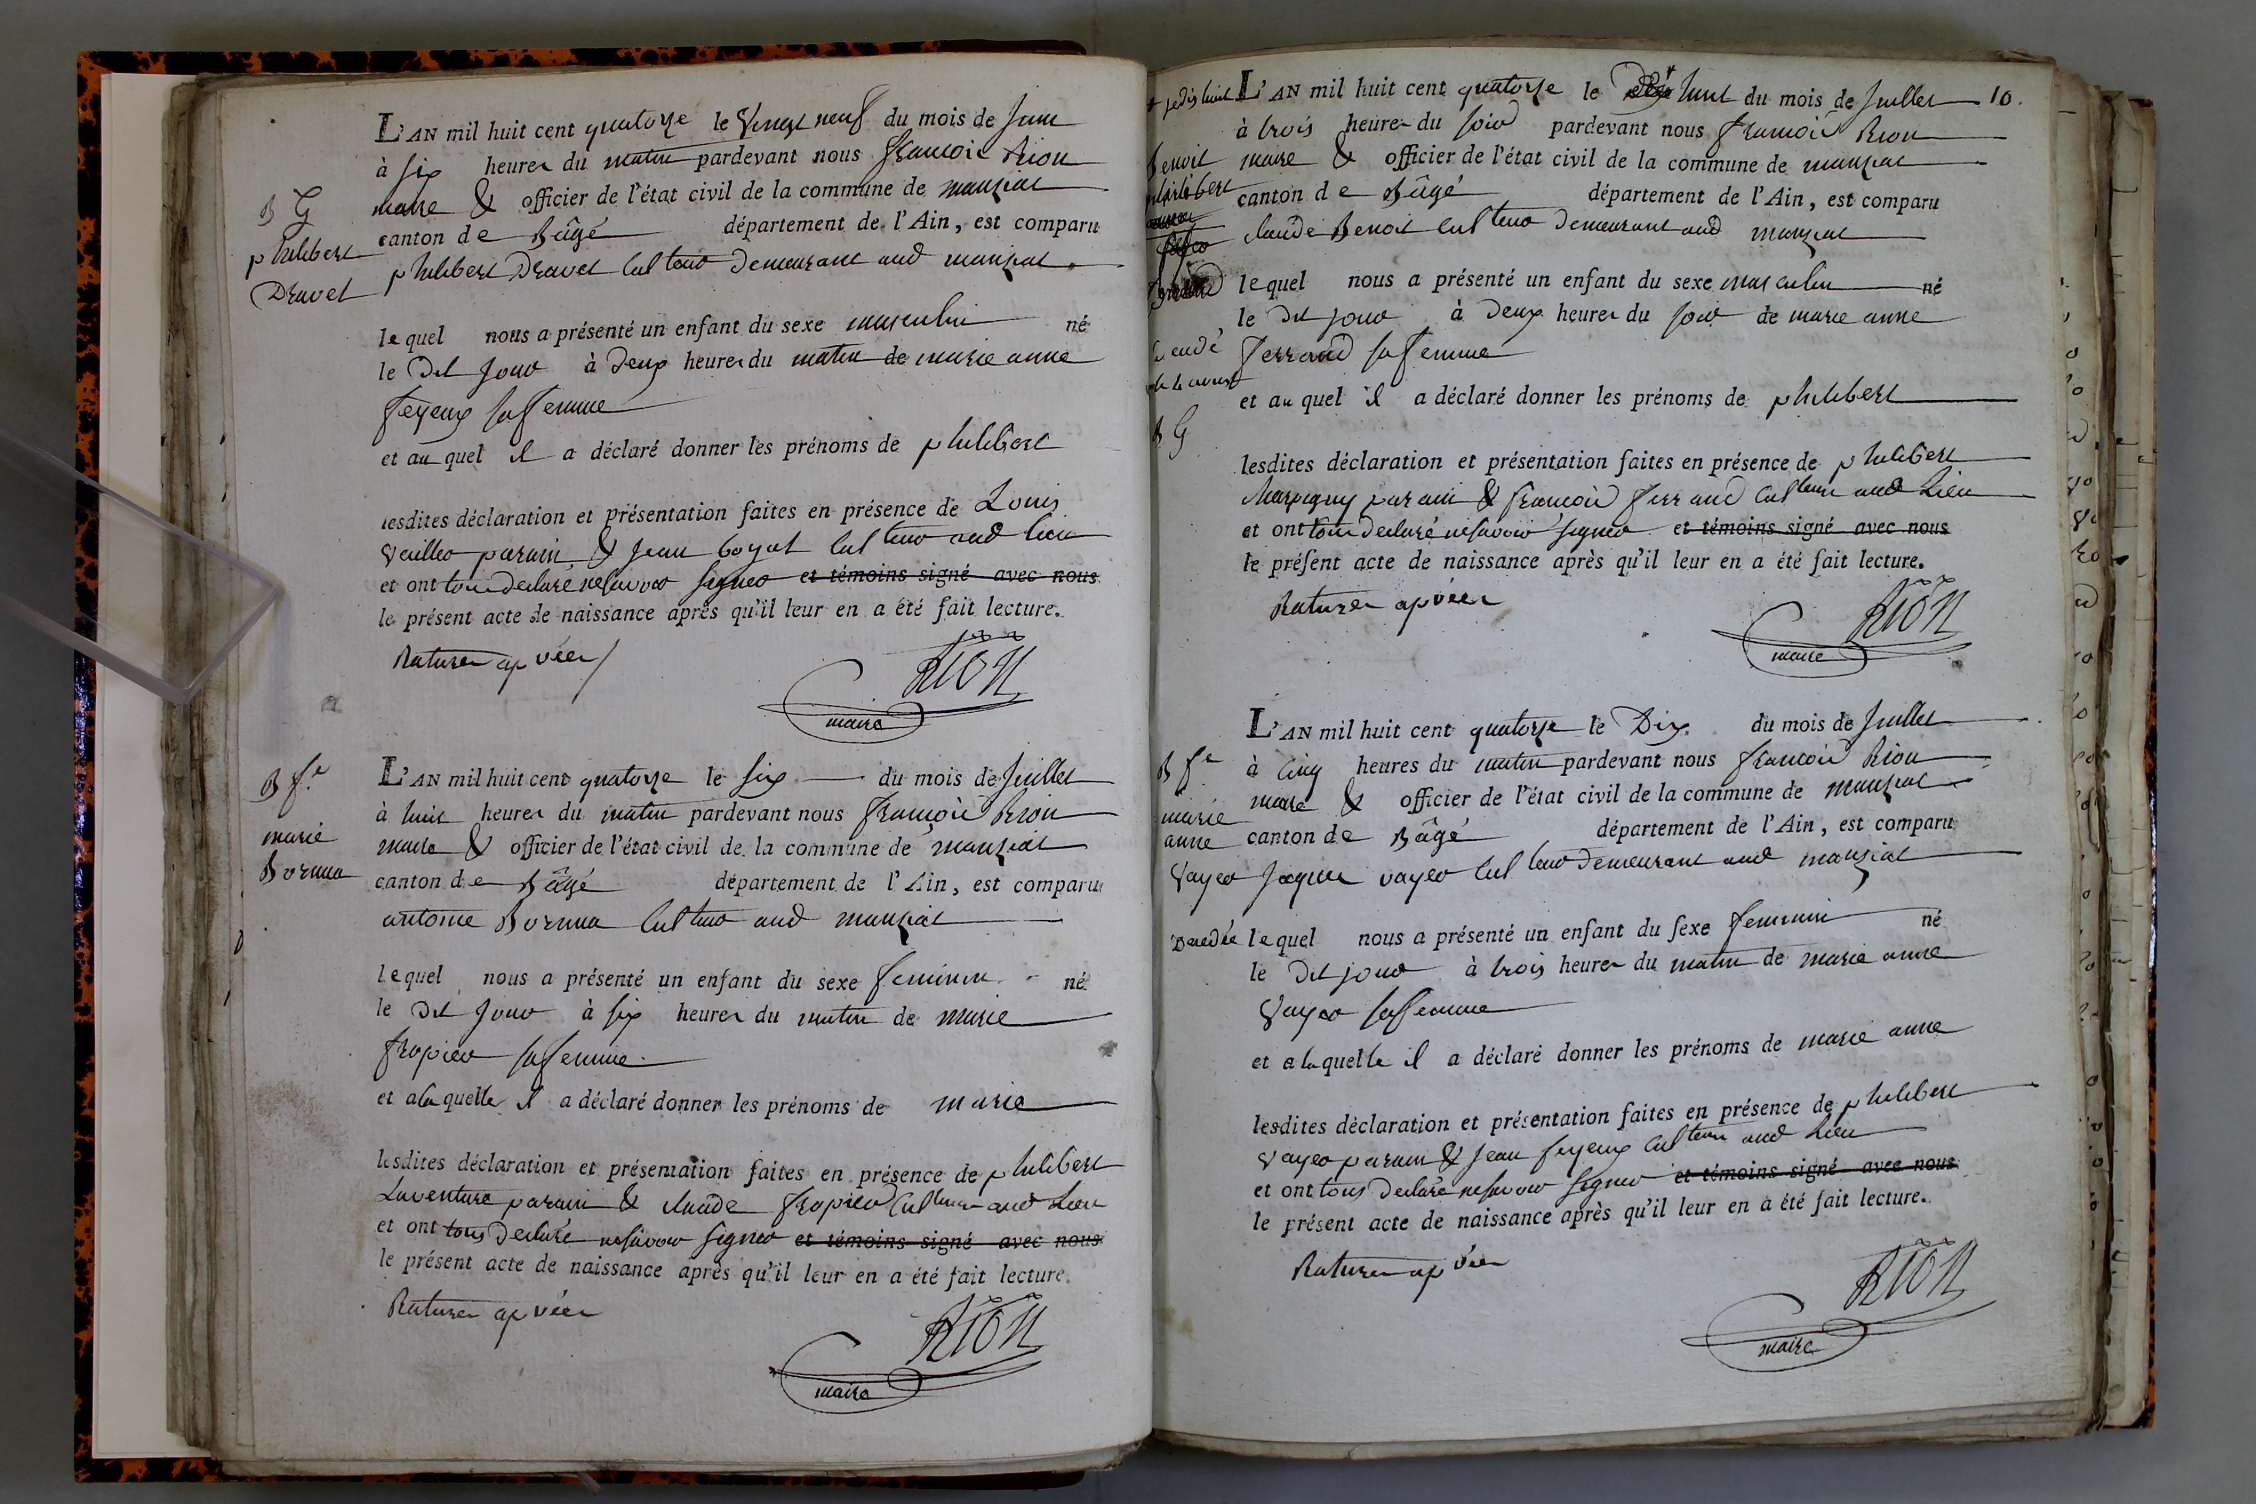 L'AN mil huit cent quatorze le Vingt neuf du mois de Juin
à six heures du matin pardevant nous françois Rion
maire & officier de l'état civil de la commune de manziat
canton de Bâgé département de l'Ain, est comparu
philibert Dravet cultiv demeurant aud manziat
B G
philibert
Dravet
lequel nous a présenté un enfant du sexe masculin né
le dit jour à deux heures du matin de marie anne
feyeux sa femme
et au quel il a déclaré donner les prénoms de philibert
lesdites déclaration et présentation faites en présence de Louis
Veuillet parain & jean boyat cultiv aud lieu
et ont tous declaré ne savoir signer et témoins signé avec nous
le présent acte de naissance après qu'il leur en a été fait lecture.
Ratures apvées
RION
maire
L'AN mil huit cent quatorze le six du mois de Juillet
à huit heures du matin pardevant nous françois Rion
maire & officier de l'état civil de la commune de manziat
canton de Bâgé département de l'Ain, est comparu
antoine Bornua cultiv aud manziat
B fe
marie
Bornua
lequel nous a présenté un enfant du sexe feminin né
le dit jour à six heures du matin de marie
fropier sa femme
et a la quelle il a déclaré donner les prénoms de marie
lesdites déclaration et présentation faites en présence de philibert
Laventure parain & claude fropier cultiveurs aud Lieu
et ont tous declaré ne savoir signer et témoins signé avec nous
le présent acte de naissance après qu'il leur en a été fait lecture.
Ratures apvées
RION
maire
L'AN mil huit cent quatorze le huit du mois de Juillet 10.
à trois heures du soir pardevant nous françois Rion
maire & officier de l'état civil de la commune de manziat
canton de Bâgé département de l'Ain, est comparu
claude Benoit cultiv demeurant aud manziat
+ je dis huit
Benoit
philibert
B G
lequel nous a présenté un enfant du sexe masculin né
le dit jour à deux heures du soir de marie anne
ferrand sa femme
et au quel il a déclaré donner les prénoms de philibert
lesdites déclaration et présentation faites en présence de philibert
parain & françois ferrand cultiveurs aud Lieu
et ont tous declaré ne savoir signer et témoins signé avec nous
le présent acte de naissance après qu'il leur en a été fait lecture.
Ratures apvées
RION
maire
L'AN mil huit cent quatorze le Dix du mois de Juillet
à cinq heures du matin pardevant nous françois Rion
maire & officier de l'état civil de la commune de manziat
canton de Bâgé département de l'Ain, est comparu
Jaques vayer cultiv demeurant aud manziat
B fe
marie
anne
Vayer
Decedée
lequel nous a présenté un enfant du sexe feminin né
le dit jour à trois heures du matin de marie anne
Vayer sa femme
et a la quelle il a déclaré donner les prénoms de marie anne
lesdites déclaration et présentation faites en présence de philibert
vayer parain & jean feyeux cultiveurs aud Lieu
et ont tous declaré ne savoir signer et témoins signé avec nous
le présent acte de naissance après qu'il leur en a été fait lecture.
Ratures apvées
RION
maire